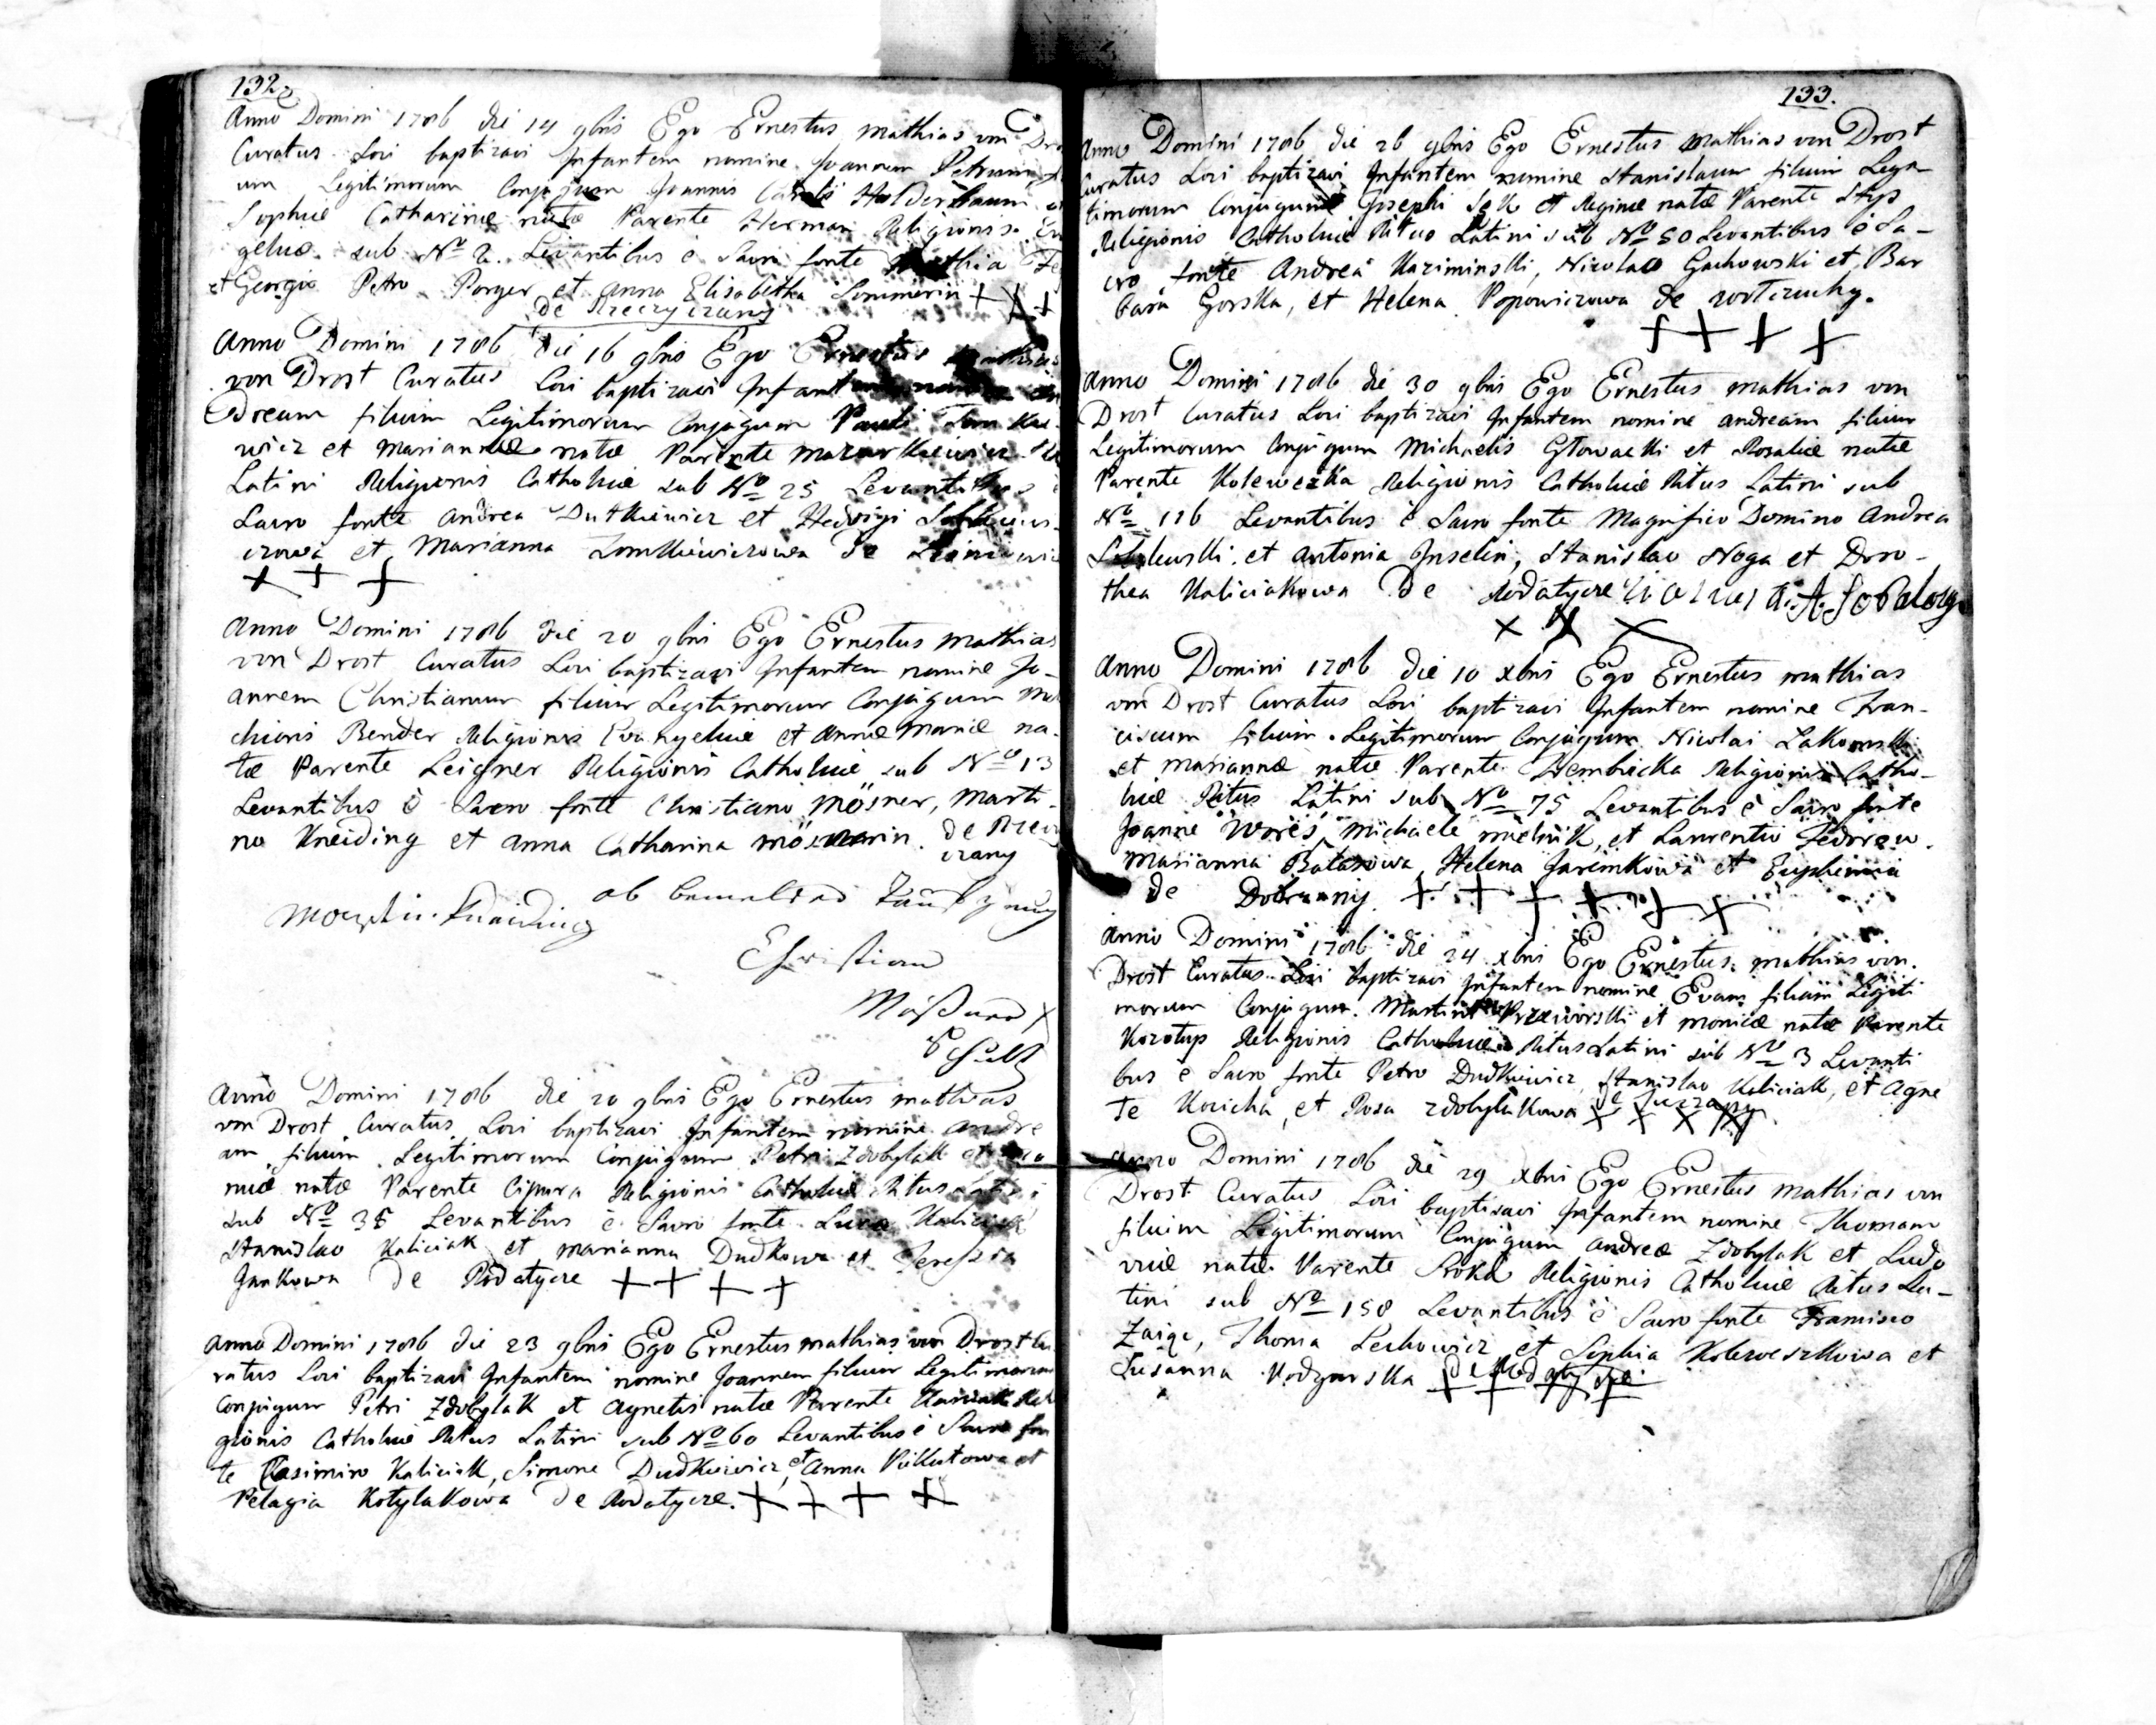 132
Anno Domini 1786 die 14 9bris Ego Ernestus Mathias von Dro
Curatus Loci baptizavi Infantem nomine Joannem Petrum
um Legitimorum Conjugum Joannis Holderbaum et
Sophiæ Catharinæ natæ Parente Herman Religionis Evan
gelicæ sub No 2. Levantibus è Sacro fonte Mathia
et Georgio Petro Porger et Anna Elisabetha Sommerin + + +
de
Anno Domini 1786 die 16 9bris Ego Ernestus Mathias
von Drost Curatus Loci baptizavi Infantem nomine An
dream filium Legitimorum Conjugum Pauli
wicz et Mariannæ natæ Parente Mazurkiewicz
Latini Religionis Catholicæ sub No 25 Levantibus è
Sacro fonte Andrea Dutkiewicz et Hedvigi
czowa et Marianna Tomkiewiczowa de
+ + +
Anno Domini 1786 die 20 9bris Ego Ernestus Mathias
von Drost Curatus Loci baptizavi Infantem nomine Jo-
annem Christianum filium Legitimorum Conjugum Mel
chioris Bender Religionis Evangelicæ et Annæ Mariæ na-
tæ Parente Leigner Religionis Catholicæ sub No 13
Levantibus è Sacro fonte Christiano Mösner, Marti-
no Kneiding et Anna Catharina Mösnerin. de
czany
Kneiding ob
Christian
Anno Domini 1786 die 20 9bris Ego Ernestus Mathias
von Drost Curatus Loci baptizavi Infantem nomine Andre
am filium Legitimorum Conjugum Petri Zdobylak et
natæ Parente Cipura Religionis Catholicæ Ritus Latini
sub No 38 Levantibus è Sacro fonte Luca Kaliciak
Stanislao Kaliciak et Marianna Dudkowa et Theressia
Jankowa de Rodatycze + + + +
Anno Domini 1786 die 23 9bris Ego Ernestus Mathias von Drost Cu
ratus Loci baptizavi Infantem nomine Joannem filium Legitimorum
Conjugum Petri Zdobylak et Agnetis natæ Parente Reli
gionis Catholicæ Ritus Latini sub No 60 Levantibus è Sacro fon
te Casimiro Kaliciak, Simone Dudkiewicz, et Anna et
Pelagia Kotylakowa de Rodatycze. + + + +
133.
Anno Domini 1786 die 26 9bris Ego Ernestus Mathias von Drost
Curatus Loci baptizavi Infantem nomine Stanislaum filium Legi-
timorum Conjugum Josephi Sek et Reginæ natæ Parente Styś
Religionis Catholicæ Ritus Latini sub No 50 Levantibus è Sa-
cro fonte Andrea Kaziminski, Nicolao Gachowski et Bar
bara Gorska, et Helena Popowiczowa de
+ + + +
Anno Domini 1786 die 30 9bris Ego Ernestus Mathias von
Drost Curatus Loci baptizavi Infantem nomine Andream filium
Legitimorum Conjugum Michaelis Głowacki et Rosaliæ natæ
Parente Kolewezka Religionis Catholicæ Ritus Latini sub
No 116 Levantibus è Sacro fonte Magnifico Domino Andrea
et Antonia Inselin, Stanislao Noga et Doro-
thea Kaliciakowa de Rodatycze
+ + +
Anno Domini 1786 die 10 xbris Ego Ernestus Mathias
von Drost Curatus Loci baptizavi Infantem nomine Fran-
ciscum filium Legitimorum Conjugum Nicolai Zakowski
et Mariannæ natæ Parente Religionis Catho-
licæ Ritus Latini sub No 75 Levantibus è Sacro fonte
Joanne Michaele Mielnik, et Laurentio Fedorow.
Marianna Batasowa, Helena Jaremkowa et Euphemia
de Dobrzany. + + + + + +
Anno Domini 1786 die 24 xbris Ego Ernestus Mathias von
Drost Curatus Loci baptizavi Infantem nomine Evam filiam Legiti
morum Conjugum Martini Przeworski et Monicæ natæ Parente
Kozotup Religionis Catholicæ Ritus Latini sub No 3 Levanti
bus è Sacro fonte Petro Dudkiewicz, Stanislao Kaliciak, et Agne
te Kozicka, et Rosa Zdobylakowa + + + +
Anno Domini 1786 die 29 xbris Ego Ernestus Mathias von
Drost Curatus Loci baptizavi Infantem nomine Thomam
filium Legitimorum Conjugum Andreæ Zdobylak et Ludo
vicæ natæ Parente Sroka Religionis Catholicæ Ritus La-
tini sub No 158 Levantibus è Sacro fonte Francisco
Zaige, Thoma Lechowicz et Sophia Koleweszkowa et
Susanna de Rodatycze + + + +